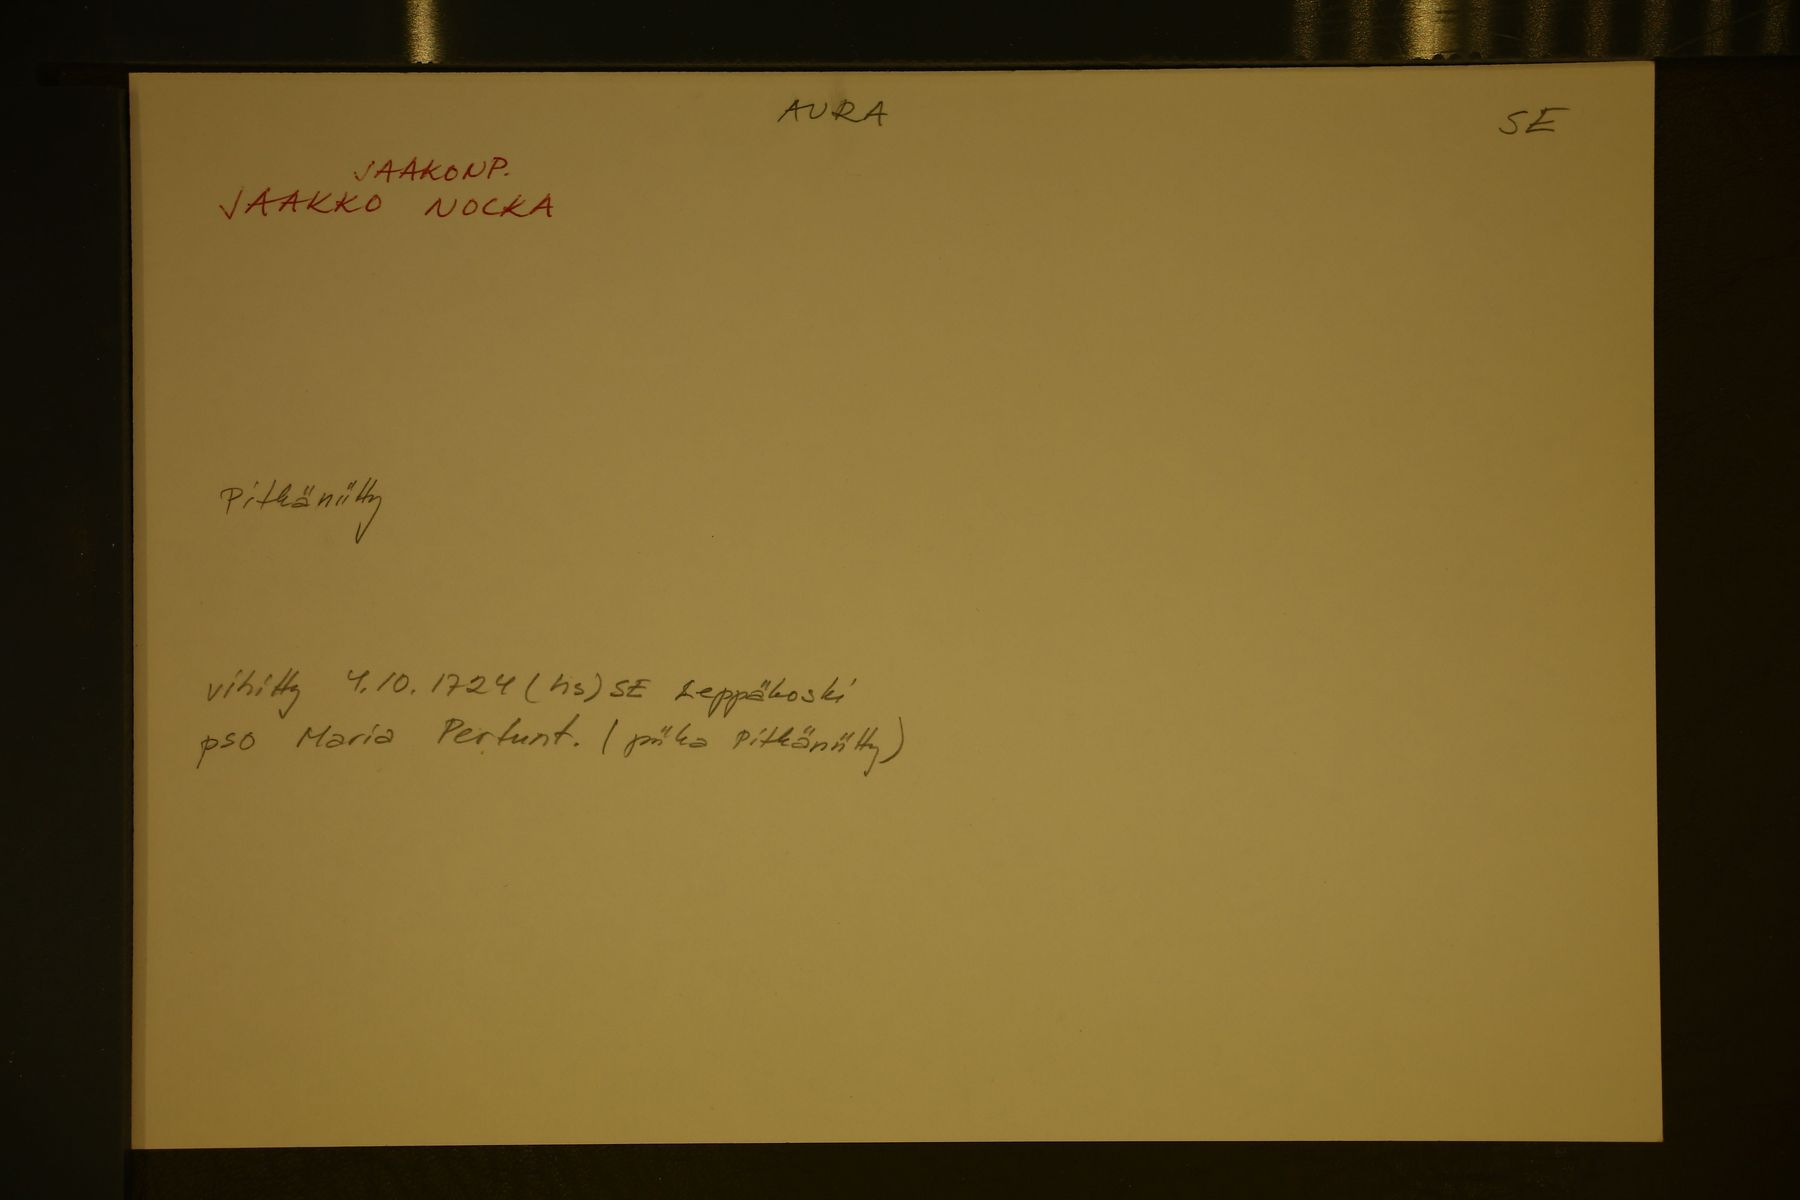 AURA
SE
JAAKONP.
JAAKKO NOCKA
Pitkäniitty
vihitty 4.10.1724 (hs) SE Leppäkoski
pso Maria Pertunt. (piika Pitkäniitty)